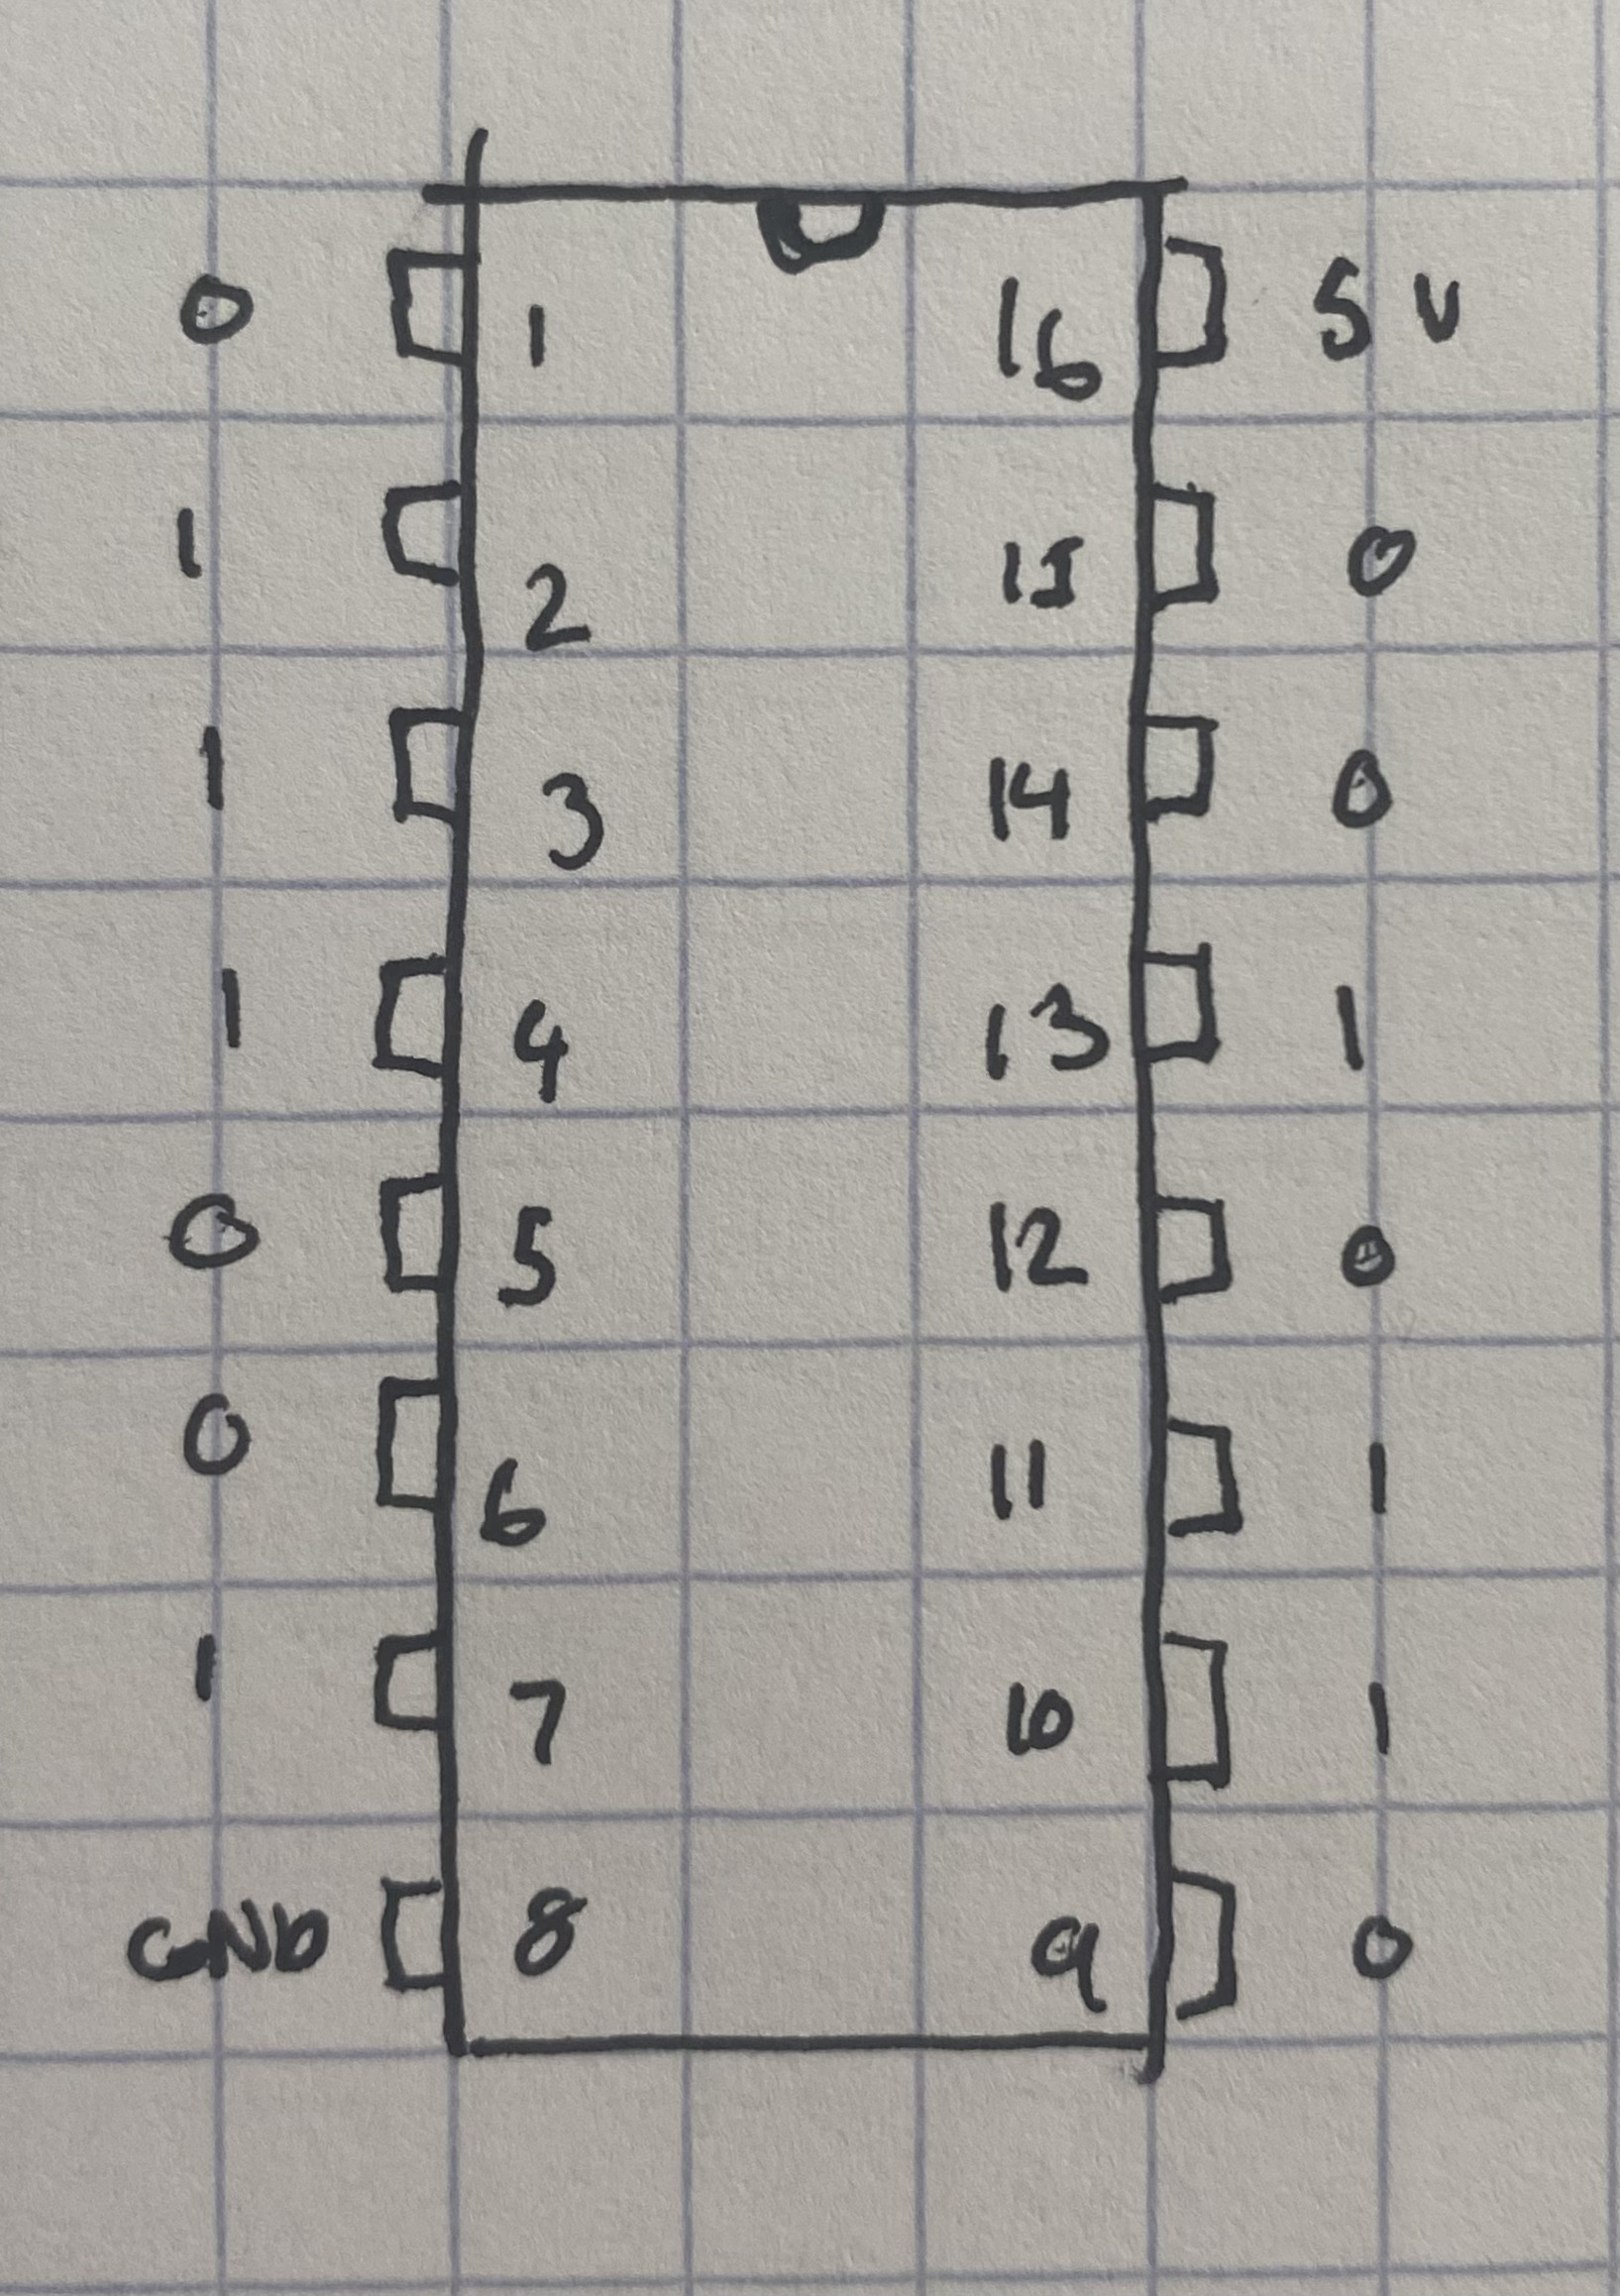 0 1 16 5V
1 2 15 0
1 3 14 0
1 4 13 1
0 5 12 0
0 6 11 1
1 7 10 1
GND 8 9 0